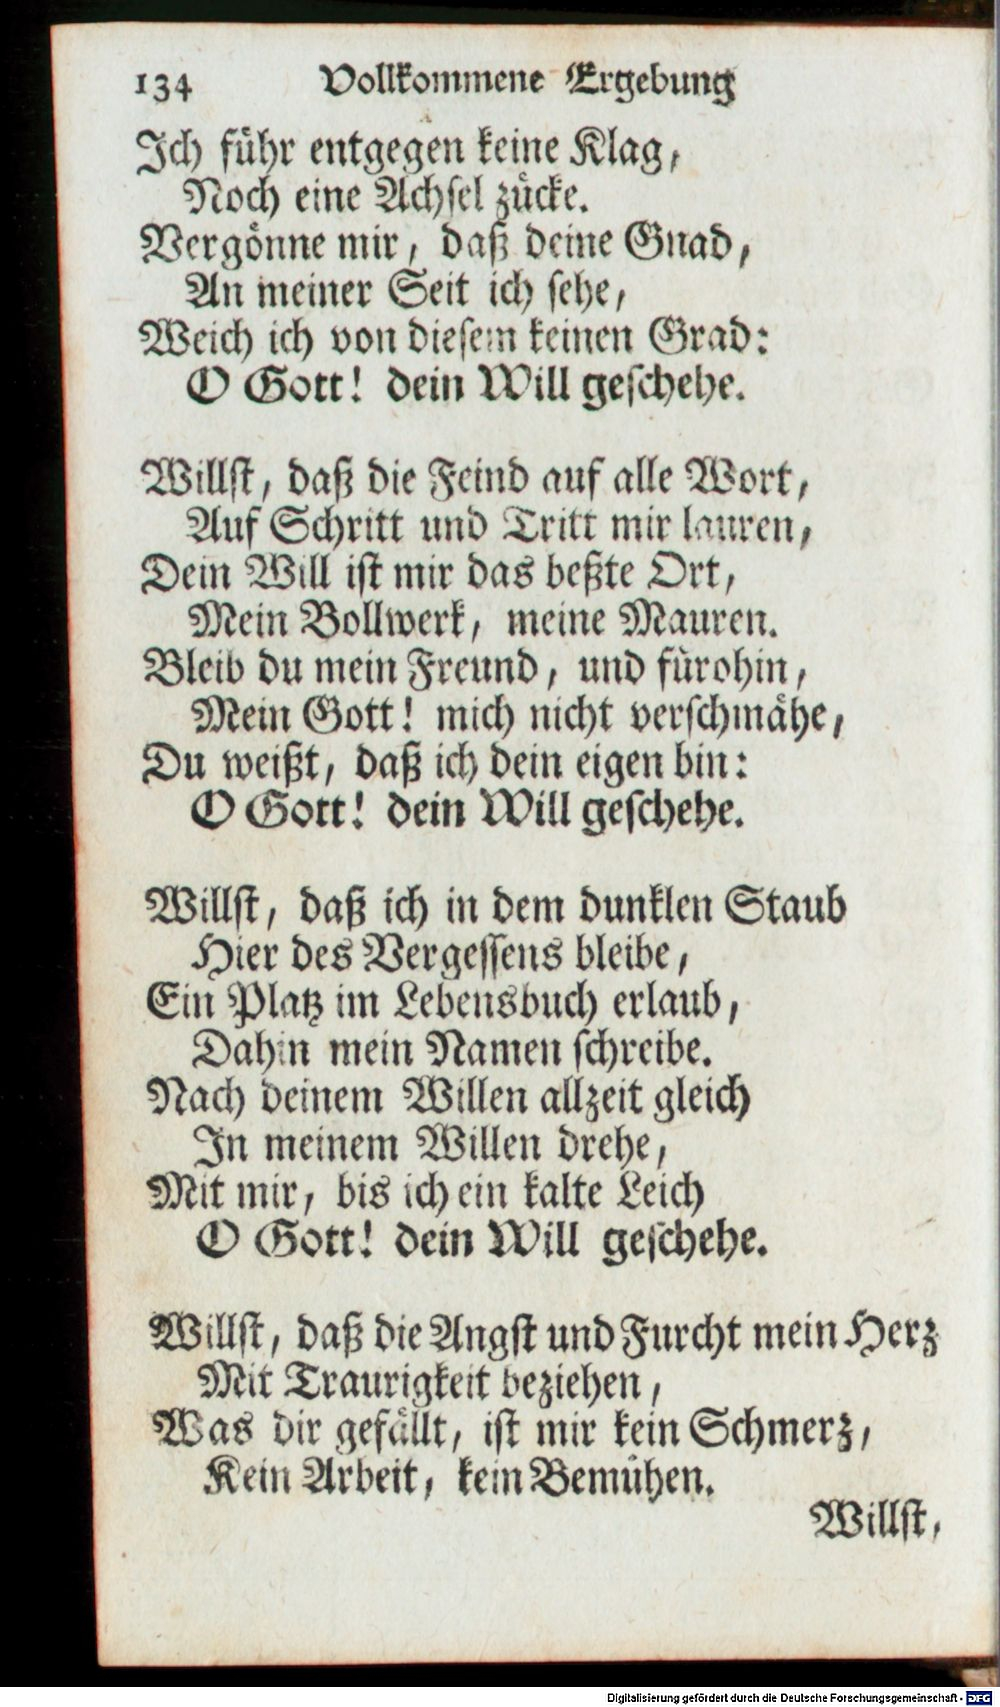 134 Vollkommene Ergebung
Ich führ entgegen keine Klag,
Noch eine Achsel zücke.
Vergönne mir, daß deine Gnad,
An meiner Seit ich sehe,
Weich ich von diesem keinen Grad:
O Gott! dein Will geschehe.
Willst, daß die Feind auf alle Wort,
Auf Schritt und Tritt mir lauren,
Dein Will ist mir das beßte Ort,
Mein Bollwerk, meine Mauren.
Bleib du mein Freund, und fürohin,
Mein Gott! mich nicht verschmähe,
Du weißt, daß ich dein eigen bin:
O Gott! dein Will geschehe.
Willst, daß ich in dem dunklen Staub
Hier des Vergessens bleibe,
Ein Platz im Lebensbuch erlaub,
Dahin mein Namen schreibe.
Nach deinem Willen allzeit gleich
In meinem Willen drehe,
Mit mir, bis ich ein kalte Leich
O Gott! dein Will geschehe.
Willst, daß die Angst und Furcht mein Herz
Mit Traurigkeit beziehen,
Was dir gefällt, ist mir kein Schmerz,
Kein Arbeit, kein Bemühen.
Willst,
Digitalisierung gefördert durch die Deutsche Forschungsgemeinschaft - DFG